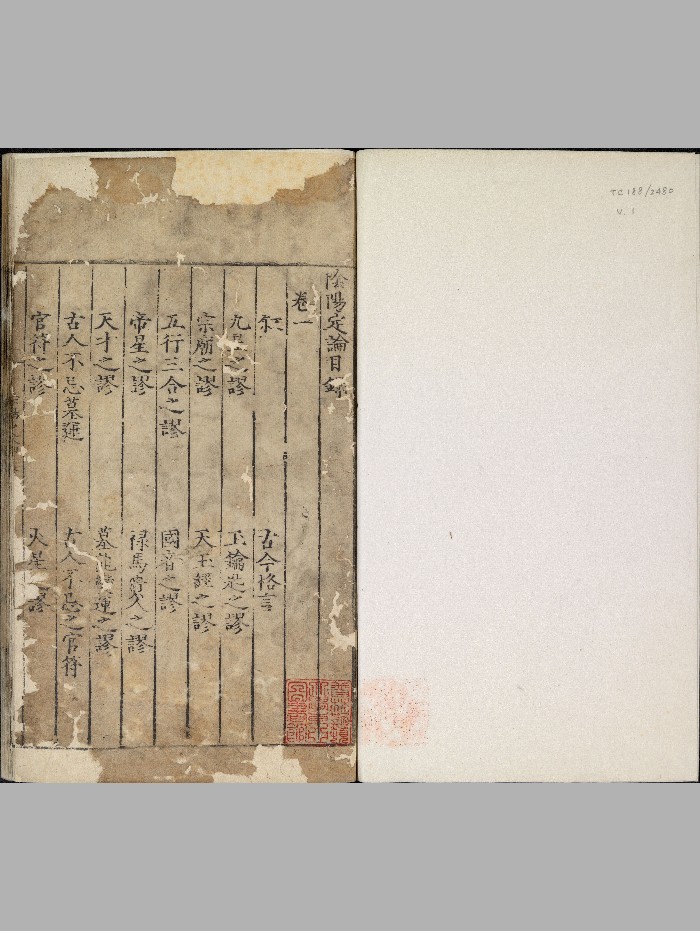 陰陽定論目錄
卷一
古今格言
九星之謬
玉鑰匙之謬
宗廟之謬
天玉經之謬
五行三合之謬
國音之謬
帝星之謬
祿馬貴人之謬
天才之謬
墓龍變運之謬
古人不忌墓運
古人不忌之官符
官符之謬
火星之謬
TC 188/2480
V. 1